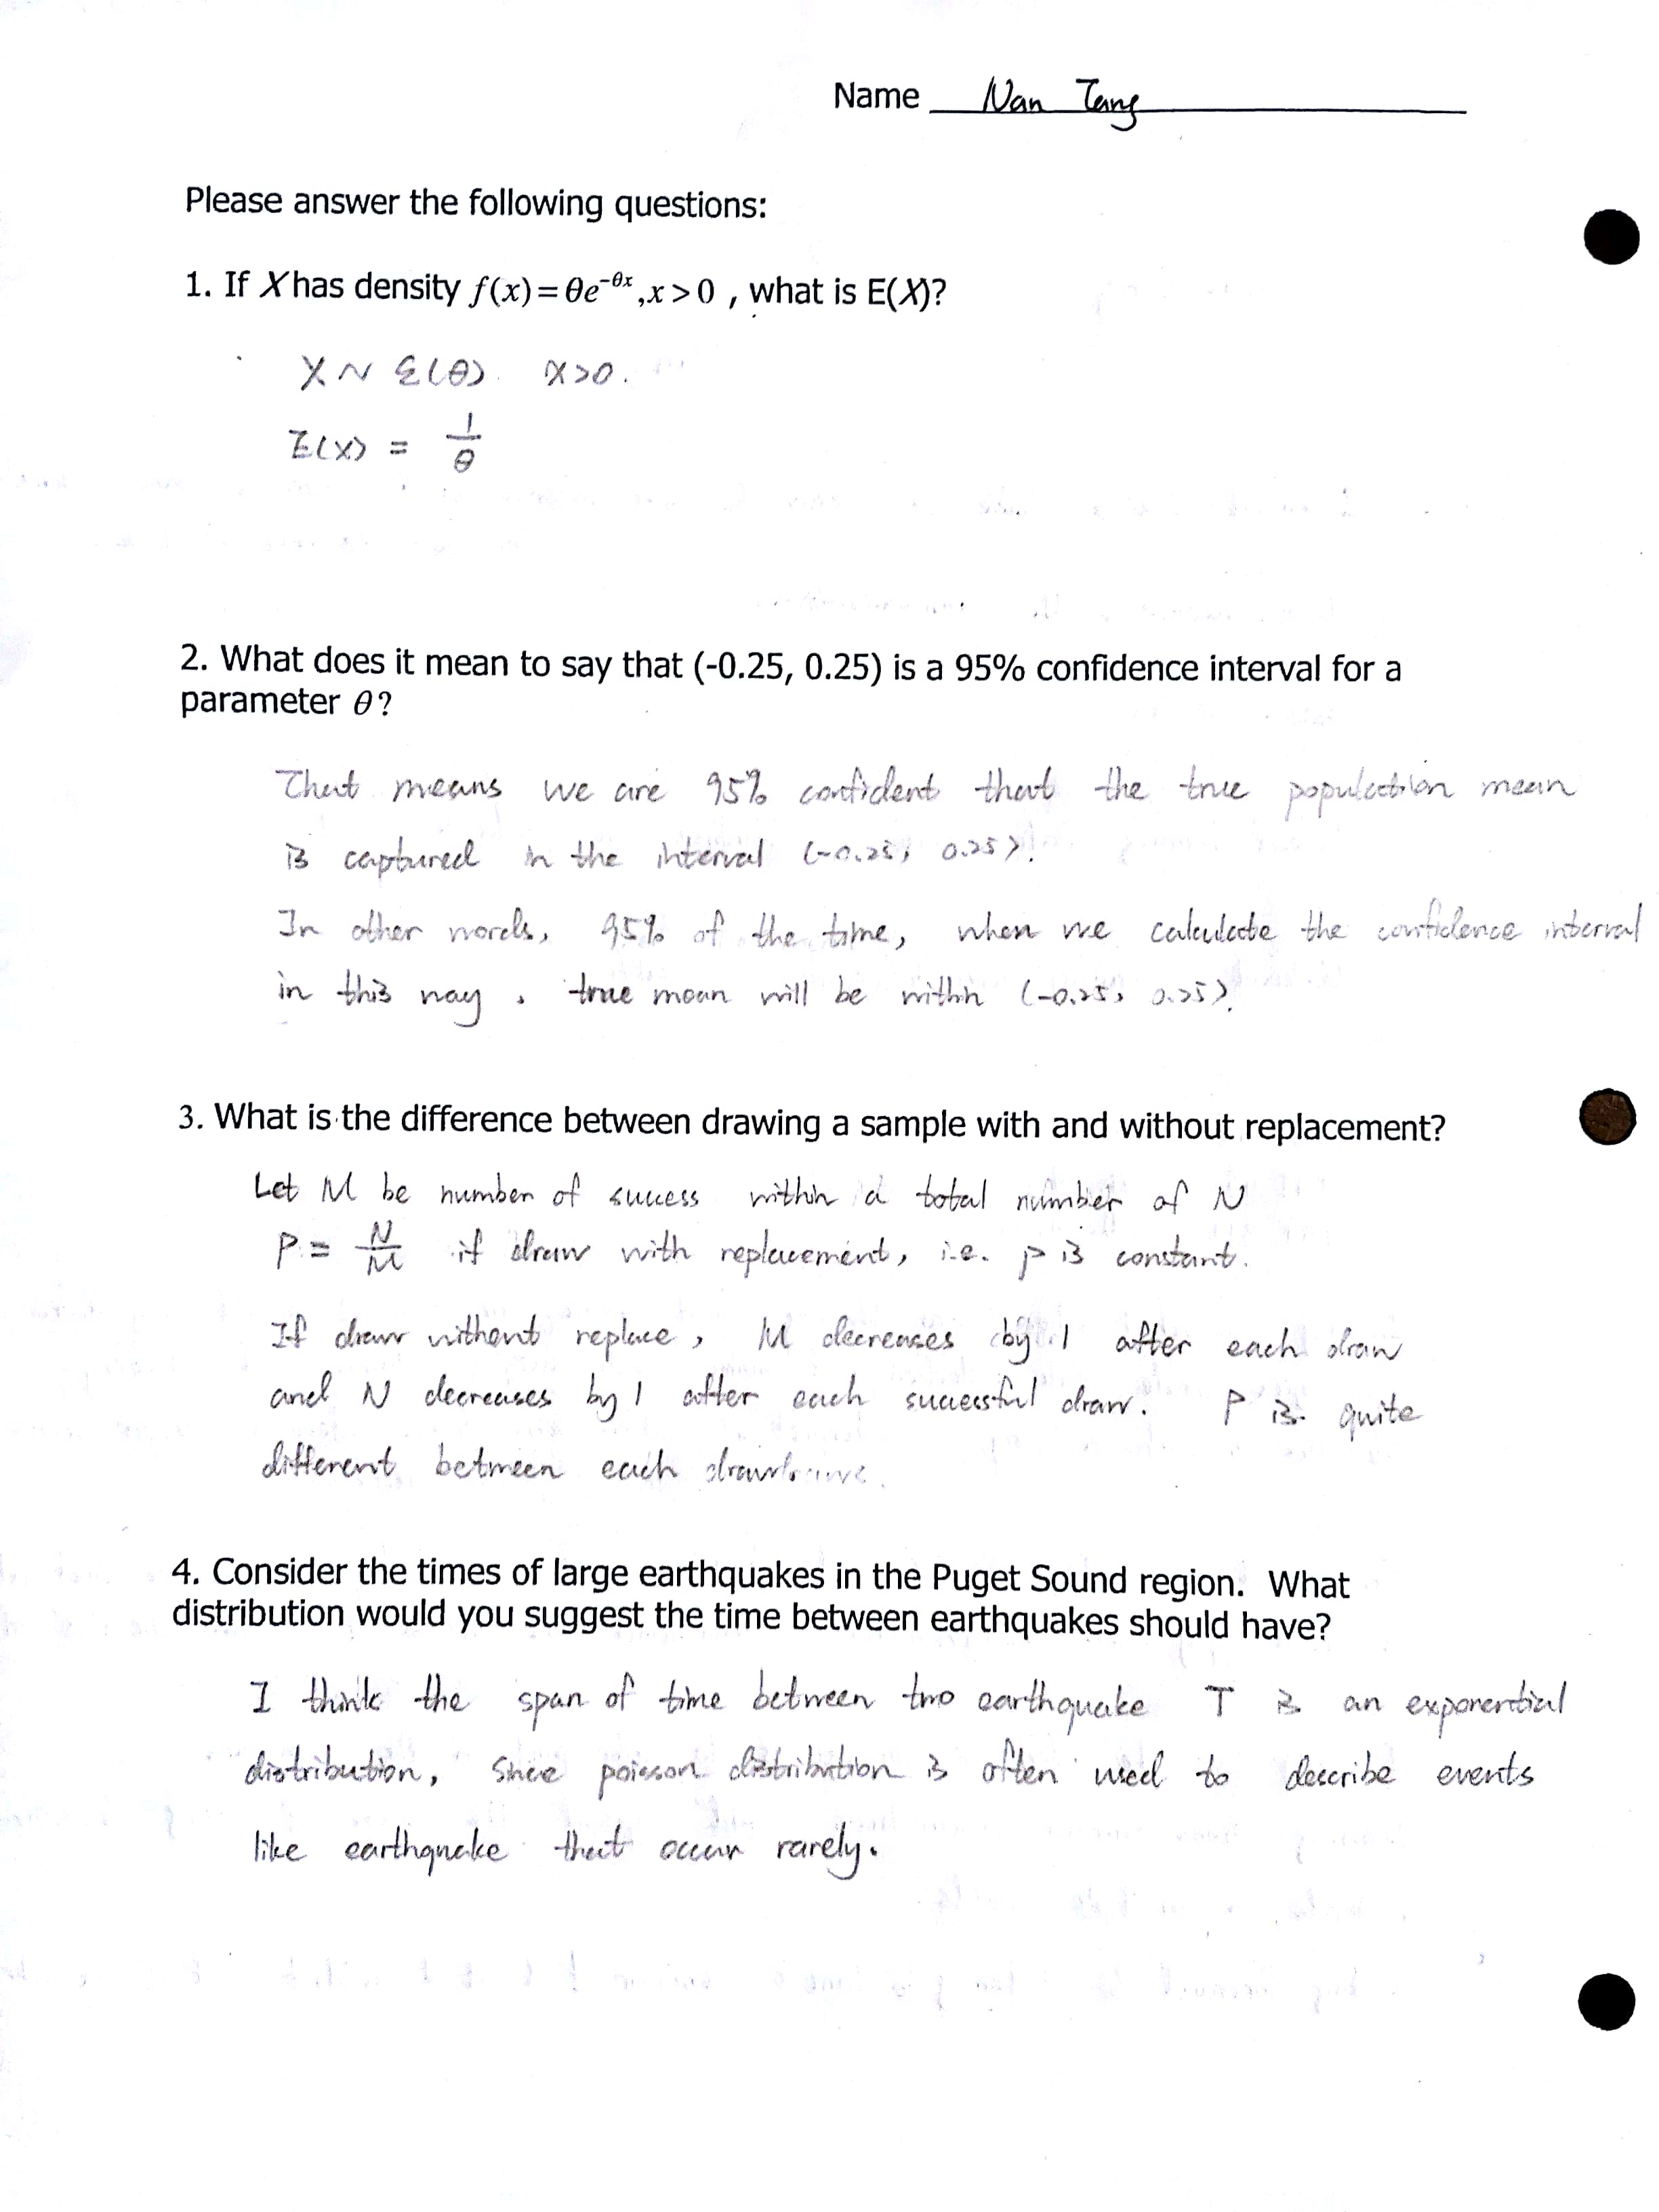 Name Nan Tang
Please answer the following questions:
1. If X has density f(x) = θe^{-θx}, x > 0 , what is E(X)?
X ~ Ɛ(θ). x>0.
E(X) = 1/θ
2. What does it mean to say that (-0.25, 0.25) is a 95% confidence interval for a
parameter θ?
That means we are 95% confident that the true population mean
is captured in the interval (-0.25, 0.25).
In other words, 95% of the time, when we calculate the confidence interval
in this way, true mean will be within (-0.25, 0.25).
3. What is the difference between drawing a sample with and without replacement?
Let M be number of success within a total number of N
P = N/M if draw with replacement, i.e. p is constant.
If draw without replace, M decreases by 1 after each draw
and N decreases by 1 after each successful draw. P is quite
different between each
4. Consider the times of large earthquakes in the Puget Sound region. What
distribution would you suggest the time between earthquakes should have?
I think the span of time between two earthquake T is an exponential
distribution, since poisson distribution is often used to describe events
like earthquake that occur rarely.